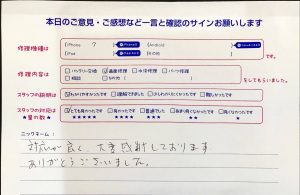 本日のご意見・ご感想など一言と確認のサインお願いします
修理機種は
iPhone 7
Android
iPad
その他
です。
修理内容は
バッテリー交換
画面修理
水没修理
パーツ修理
その他
をしてもらいました。
スタッフの説明は
わかりやすかったです
理解できました
少しわかりにくかったです
難しかったです
スタッフの対応は
★星の数★
とても良かったです
良かったです
普通でした
あまり良くなかったです
良くなかったです
★★★★★
★★★★
★★★
★★
★
ニックネーム：
対応が良く、大変感謝しております
ありがとうございました。